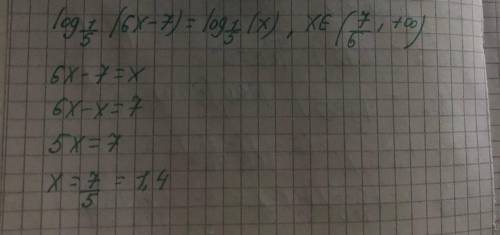 log_{1/5} (6x-7) = log_{1/5} (x), x∈(7/6, +∞)
6x-7=x
6x-x=7
5x=7
x=7/5=1,4